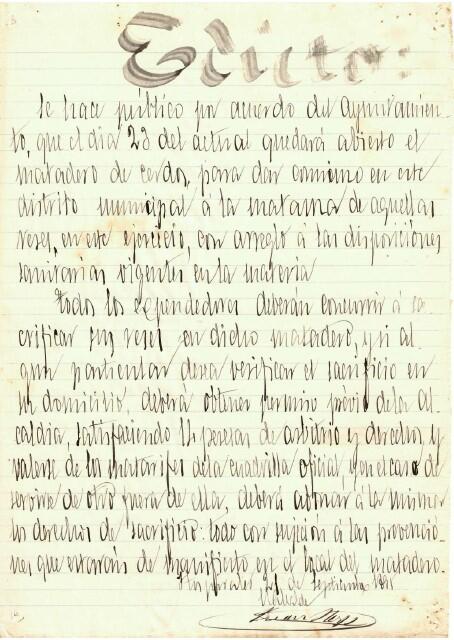 Edicto:
Se hace público por acuerdo del Ayuntamien-
to, que el dia 23 del actual quedará abierto el
matadero de cerdos, para dar comienzo en este
distrito municipal á la matanza de aquellas
reses, en este ejercicio, con arreglo á las disposiciones
sanitarias vigentes en la materia
Todos los expendedores deberán concurrir á sa-
crificar sus reses en dicho matadero, y si al-
gun particular desea verificar el sacrificio en
su domicilio, deberá obtener permiso prévio de la Al-
caldia, satisfaciendo pesetas de arbitrio ó derechos, y
valerse de los matarifes de la cuadrilla oficial, y en el caso de
servirse de otro fuera de ella, deberá abonar á la misma
los derechos de sacrificio: todo con sujecion á las prevencio-
nes que estarán de manifiesto en el local del matadero.
21 de Septiembre